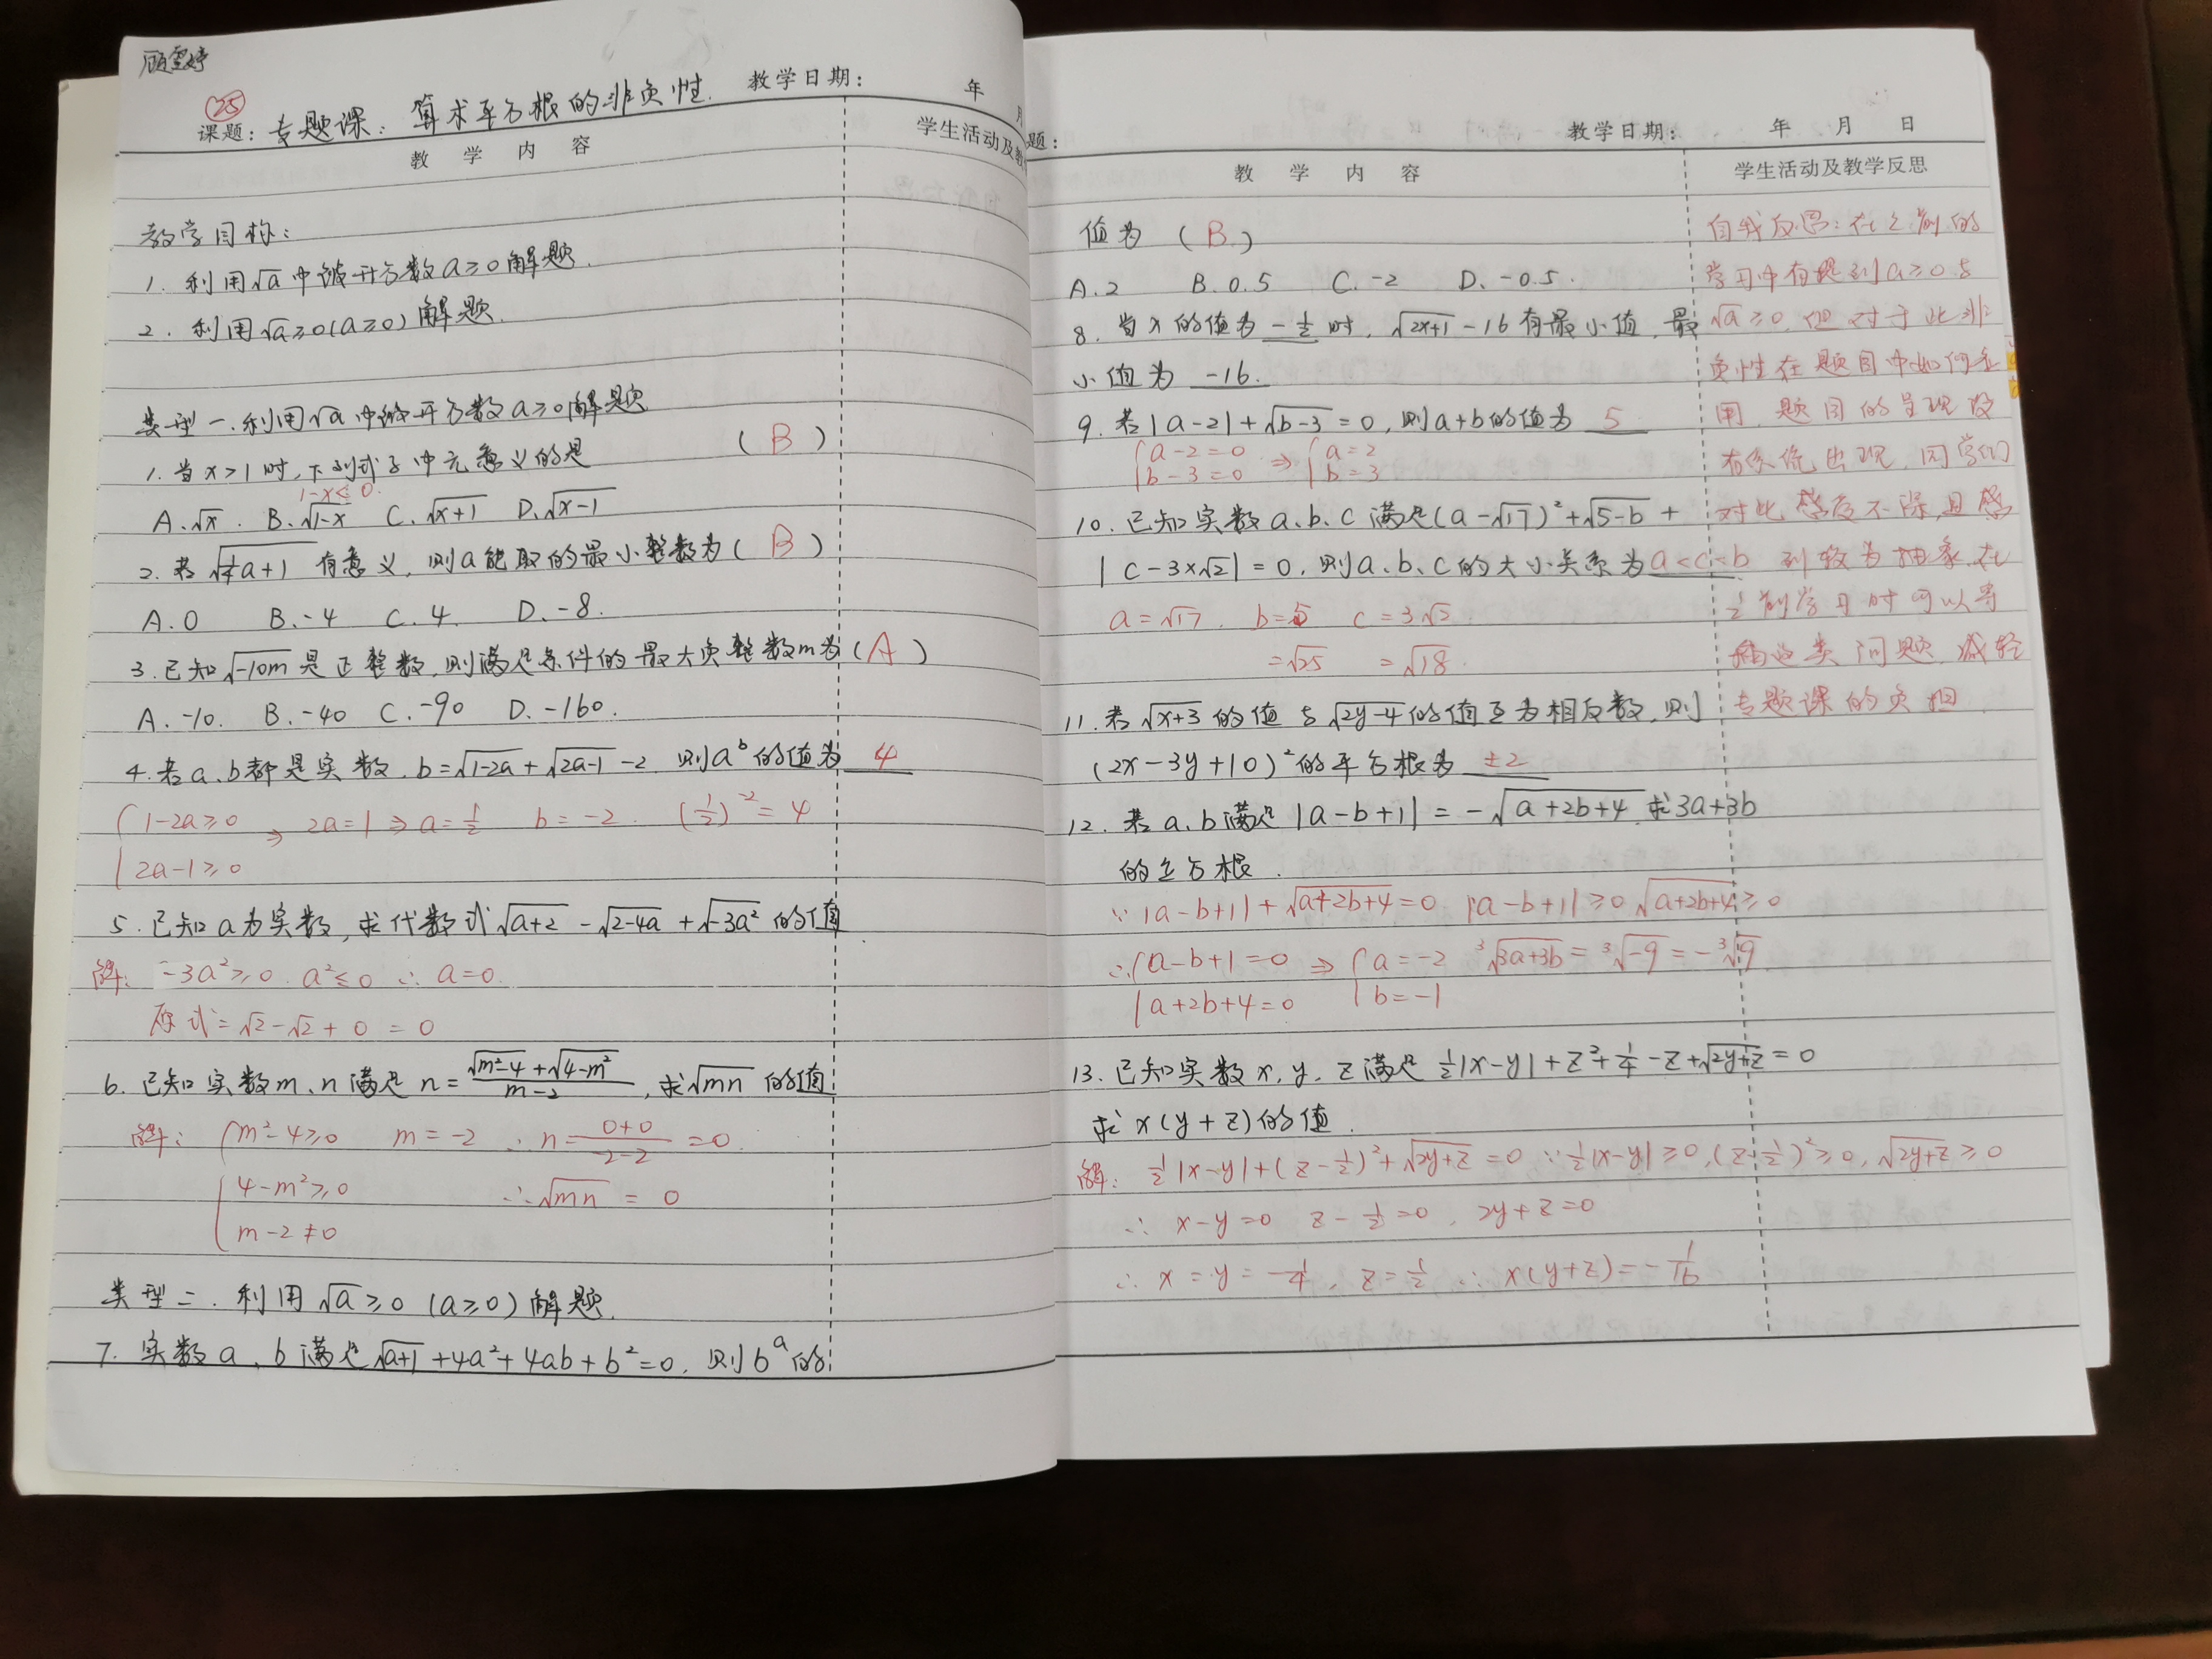 顾雪婷
25
课题：专题课：算术平方根的非负性. 教学日期： 年 月
教 学 内 容 学生活动及教
教学目标：
1. 利用√a中被开方数a≥0解题.
2. 利用√a≥0(a≥0)解题.
类型一.利用√a中被开方数a≥0解题
1.当x>1时,下列式子中无意义的是 (B)
1-x≤0.
A.√x. B.√(1-x) C.√(x+1) D.√(x-1)
2.若√(½a+1) 有意义,则a能取的最小整数为(B)
A.0 B.-4 C.4. D.-8.
3.已知√(-10m)是正整数,则满足条件的最大负整数m为(A)
A.-10. B.-40 C.-90 D.-160.
4.若a、b都是实数.b=√(1-2a)+√(2a-1)-2 则a^b的值为 4
{1-2a≥0 ⇒ 2a=1⇒a=½ b=-2. (½)^-2=4
2a-1≥0
5.已知a为实数,求代数式√(a+2)-√(2-4a)+√(-3a²)的值.
解: -3a²≥0. a²≤0 ∴a=0.
原式=√2-√2+0=0
6.已知实数m、n满足n=(√(m²-4)+√(4-m²))/(m-2),求√(mn)的值
解: {m²-4≥0 m=-2 ∴n=(0+0)/(-2-2)=0.
4-m²≥0 ∴√(mn)=0
m-2≠0
类型二.利用√a≥0(a≥0)解题.
7.实数a、b满足√(a+1)+4a²+4ab+b²=0.则b^a的
题： 教学日期： 年 月 日
教 学 内 容 学生活动及教学反思
值为 (B)
A.2 B.0.5 C.-2 D.-0.5.
8.当x的值为-½时,√(2x+1)-16有最小值,最
小值为 -16.
9.若|a-2|+√(b-3)=0,则a+b的值为 5
{a-2=0 ⇒ {a=2
b-3=0 b=3
10.已知实数a.b.c满足(a-√17)²+√(5-b)+
|c-3×√2|=0.则a、b、c的大小关系为a<c<b
a=√17. b=5 c=3√2
=√25 =√18.
11.若√(x+3)的值与√(2y-4)的值互为相反数,则
(2x-3y+10)²的平方根为 ±2
12.若a、b满足|a-b+1|=-√(a+2b+4).求3a+3b
的立方根.
∵|a-b+1|+√(a+2b+4)=0 |a-b+1|≥0 √(a+2b+4)≥0
∴{a-b+1=0 ⇒ {a=-2 ³√(3a+3b)=³√(-9)=-³√9
a+2b+4=0 b=-1
13.已知实数x,y,z满足½|x-y|+z²+¼-z+√(2y+z)=0
求x(y+z)的值.
解: ½|x-y|+(z-½)²+√(2y+z)=0 ∵½|x-y|≥0,(z-½)²≥0,√(2y+z)≥0
∴ x-y=0 z-½=0, 2y+z=0
∴ x=y=-¼, z=½ ∴x(y+z)=-1/16
自我反思:在之前的
学习中有提到a≥0与
√a≥0,但对于此非
负性在题目中如何应
用,题目的呈现没
有系统出现,同学们
对此感受不深,且感
到较为抽象,在
之前学习时可以穿
插此类问题,减轻
专题课的负担